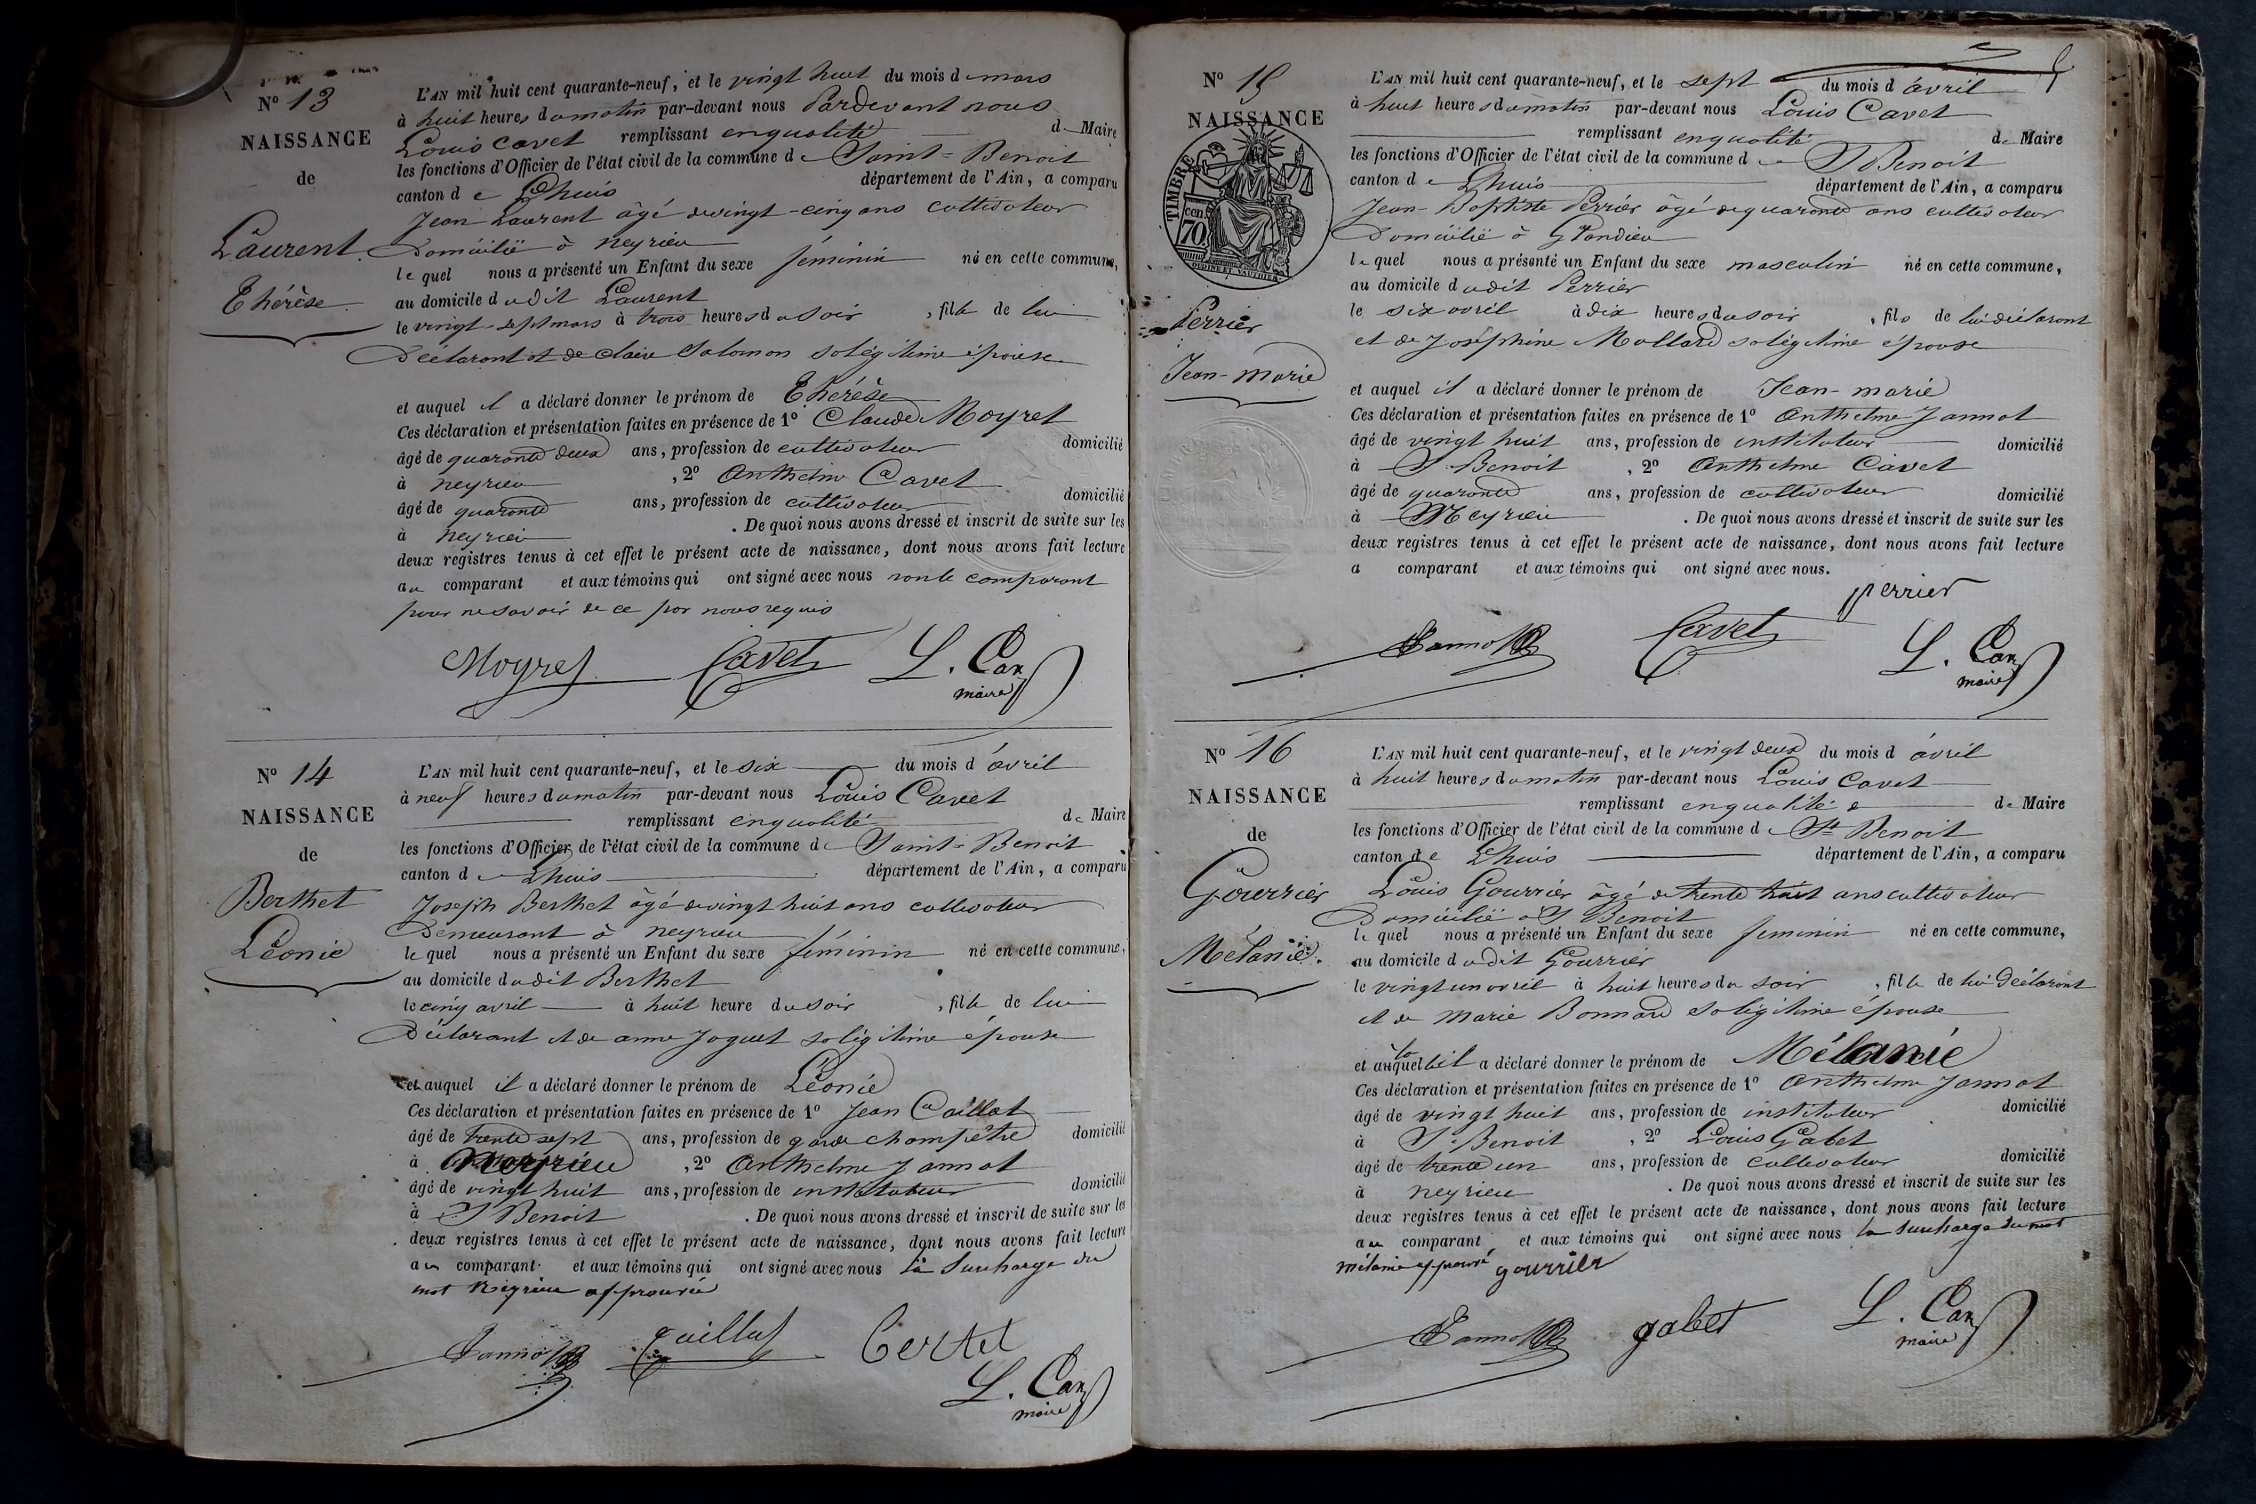 N° 13
NAISSANCE
de
Laurent
Thérèse
L'AN mil huit cent quarante-neuf, et le vingt huit du mois de mars
à huit heures du matin par-devant nous Pardevant nous
Louis Cavet remplissant en qualité de Maire
les fonctions d'Officier de l'état civil de la commune de Saint-Benoit
canton de Lhuis département de l'Ain, a comparu
Jean Laurent âgé de vingt-cinq ans cultivateur
Domicilié à Neyrieu
lequel nous a présenté un Enfant du sexe féminin né en cette commune,
au domicile dudit Laurent
le vingt-sept mars à trois heures du soir, fille de lui
Déclarant et de Claire Salomon sa légitime épouse
et auquel il a déclaré donner le prénom de Thérèse
Ces déclaration et présentation faites en présence de 1° Claude Moyret
âgé de quarante deux ans, profession de cultivateur domicilié
à Neyrieu , 2° Anthelme Cavet
âgé de quarante ans, profession de cultivateur domicilié
à Neyrieu . De quoi nous avons dressé et inscrit de suite sur les
deux registres tenus à cet effet le présent acte de naissance, dont nous avons fait lecture
au comparant et aux témoins qui ont signé avec nous non le comparant
pour ne savoir de ce par nous requis
Moyret Cavet L. Cavet
maire
N° 14
NAISSANCE
de
Berthet
Léonie
L'AN mil huit cent quarante-neuf, et le six du mois d'avril
à neuf heures du matin par-devant nous Louis Cavet
remplissant en qualité de Maire
les fonctions d'Officier de l'état civil de la commune de Saint-Benoit
canton de Lhuis département de l'Ain, a comparu
Joseph Berthet âgé de vingt huit ans cultivateur
Demeurant à Neyrieu
lequel nous a présenté un Enfant du sexe féminin né en cette commune,
au domicile dudit Berthet
le cinq avril à huit heure du soir, fille de lui
Déclarant et de anne Joguet sa légitime épouse
et auquel il a déclaré donner le prénom de Léonie
Ces déclaration et présentation faites en présence de 1° Jean Caillat
âgé de trente sept ans, profession de garde champêtre domicilié
à Neyrieu , 2° Anthelme Jannot
âgé de vingt huit ans, profession de instituteur domicilié
à St Benoit . De quoi nous avons dressé et inscrit de suite sur les
deux registres tenus à cet effet le présent acte de naissance, dont nous avons fait lecture
au comparant et aux témoins qui ont signé avec nous la Surcharge du
mot Neyrieu approuvée
Jannot Caillat Bertet
L. Cavet
maire
N° 15
NAISSANCE
TIMBRE
cen
70
Perrier
Jean-Marie
L'AN mil huit cent quarante-neuf, et le sept du mois d'avril
à huit heures du matin par-devant nous Louis Cavet
remplissant en qualité de Maire
les fonctions d'Officier de l'état civil de la commune de St Benoit
canton de Lhuis département de l'Ain, a comparu
Jean-Baptiste Perrier âgé de quarante ans cultivateur
Domicilié à Glandieu
lequel nous a présenté un Enfant du sexe masculin né en cette commune,
au domicile dudit Perrier
le six avril à dix heures du soir, fils de lui déclarant
et de Joséphine Mollard sa légitime épouse
et auquel il a déclaré donner le prénom de Jean-marie
Ces déclaration et présentation faites en présence de 1° Anthelme Jannot
âgé de vingt huit ans, profession de instituteur domicilié
à St Benoit , 2° Anthelme Cavet
âgé de quarante ans, profession de cultivateur domicilié
à Neyrieu . De quoi nous avons dressé et inscrit de suite sur les
deux registres tenus à cet effet le présent acte de naissance, dont nous avons fait lecture
a comparant et aux témoins qui ont signé avec nous.
perrier
Jannot Cavet L. Cavet
maire
N° 16
NAISSANCE
de
Gourrier
Mélanie.
L'AN mil huit cent quarante-neuf, et le vingt deux du mois d'avril
à huit heures du matin par-devant nous Louis Cavet
remplissant en qualité de de Maire
les fonctions d'Officier de l'état civil de la commune de St Benoit
canton de Lhuis département de l'Ain, a comparu
Louis Gourrier âgé de trente huit ans cultivateur
Domicilié à St Benoit
lequel nous a présenté un Enfant du sexe feminin né en cette commune,
au domicile dudit Gourrier
le vingt un avril à huit heures du soir, fille de lui Déclarant
et de Marie Bonnard sa légitime épouse
et à laquelle il a déclaré donner le prénom de Mélanie
Ces déclaration et présentation faites en présence de 1° Anthelme Jannot
âgé de vingt huit ans, profession de instituteur domicilié
à St Benoit , 2° Louis Gabet
âgé de trente un ans, profession de cultivateur domicilié
à Neyrieu . De quoi nous avons dressé et inscrit de suite sur les
deux registres tenus à cet effet le présent acte de naissance, dont nous avons fait lecture
au comparant et aux témoins qui ont signé avec nous la Surcharge du mot
mélanie approuvé gourrier
Jannot gabet L. Cavet
maire